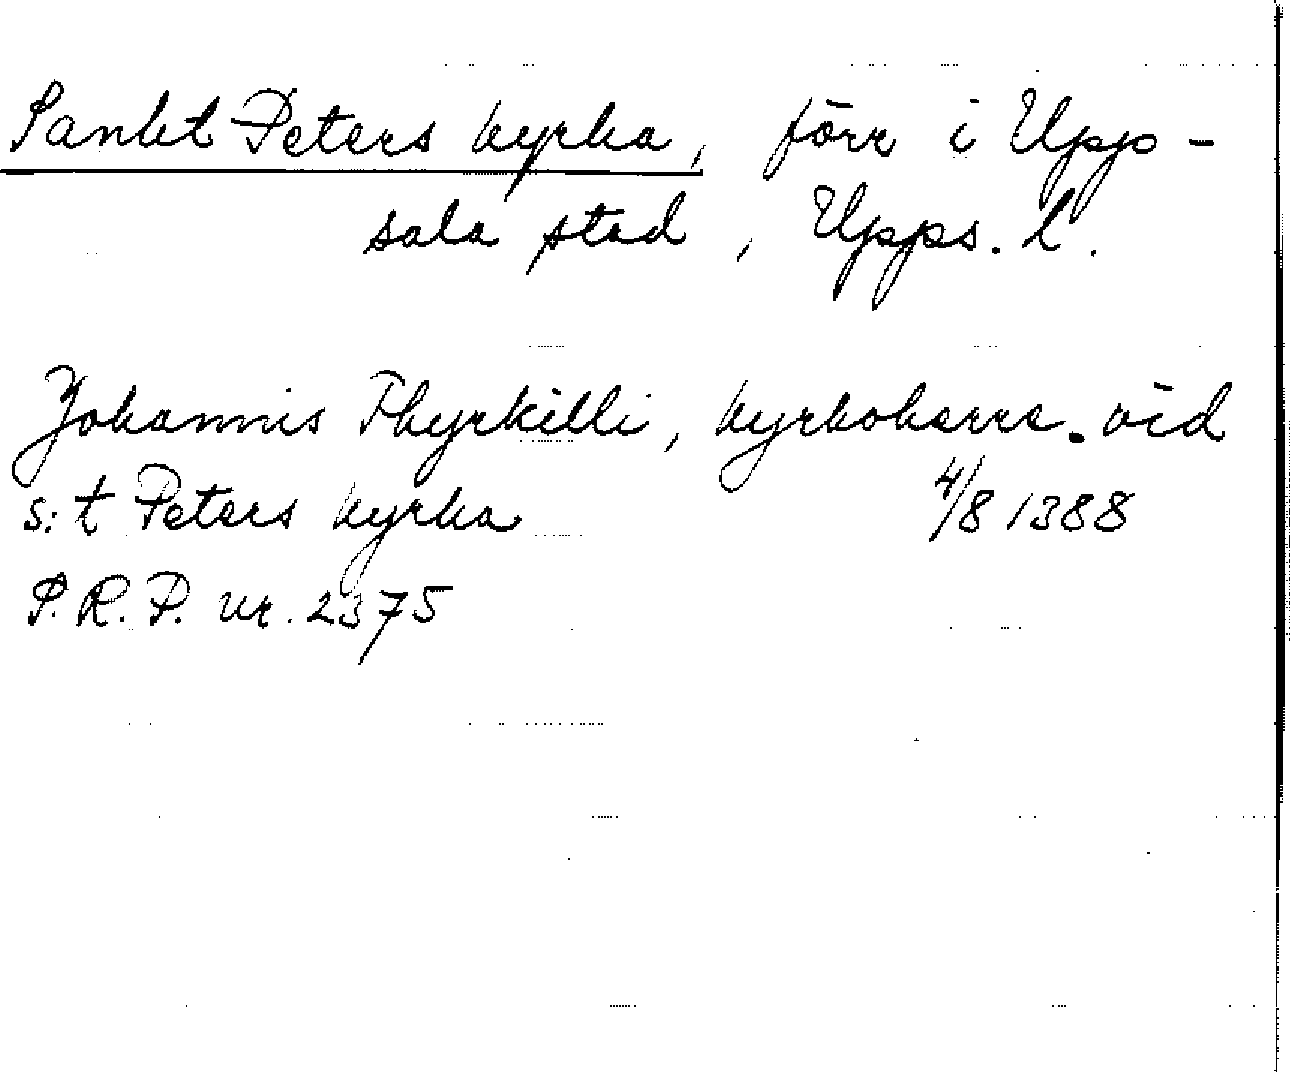 Sankt Peters kyrka, förr i Upp-
sala stad, Upps. l.
Johannis Thyrkilli, kyrkoherre. vid
s:t Peters kyrka 4/8 1388
S.R.P. nr. 2375